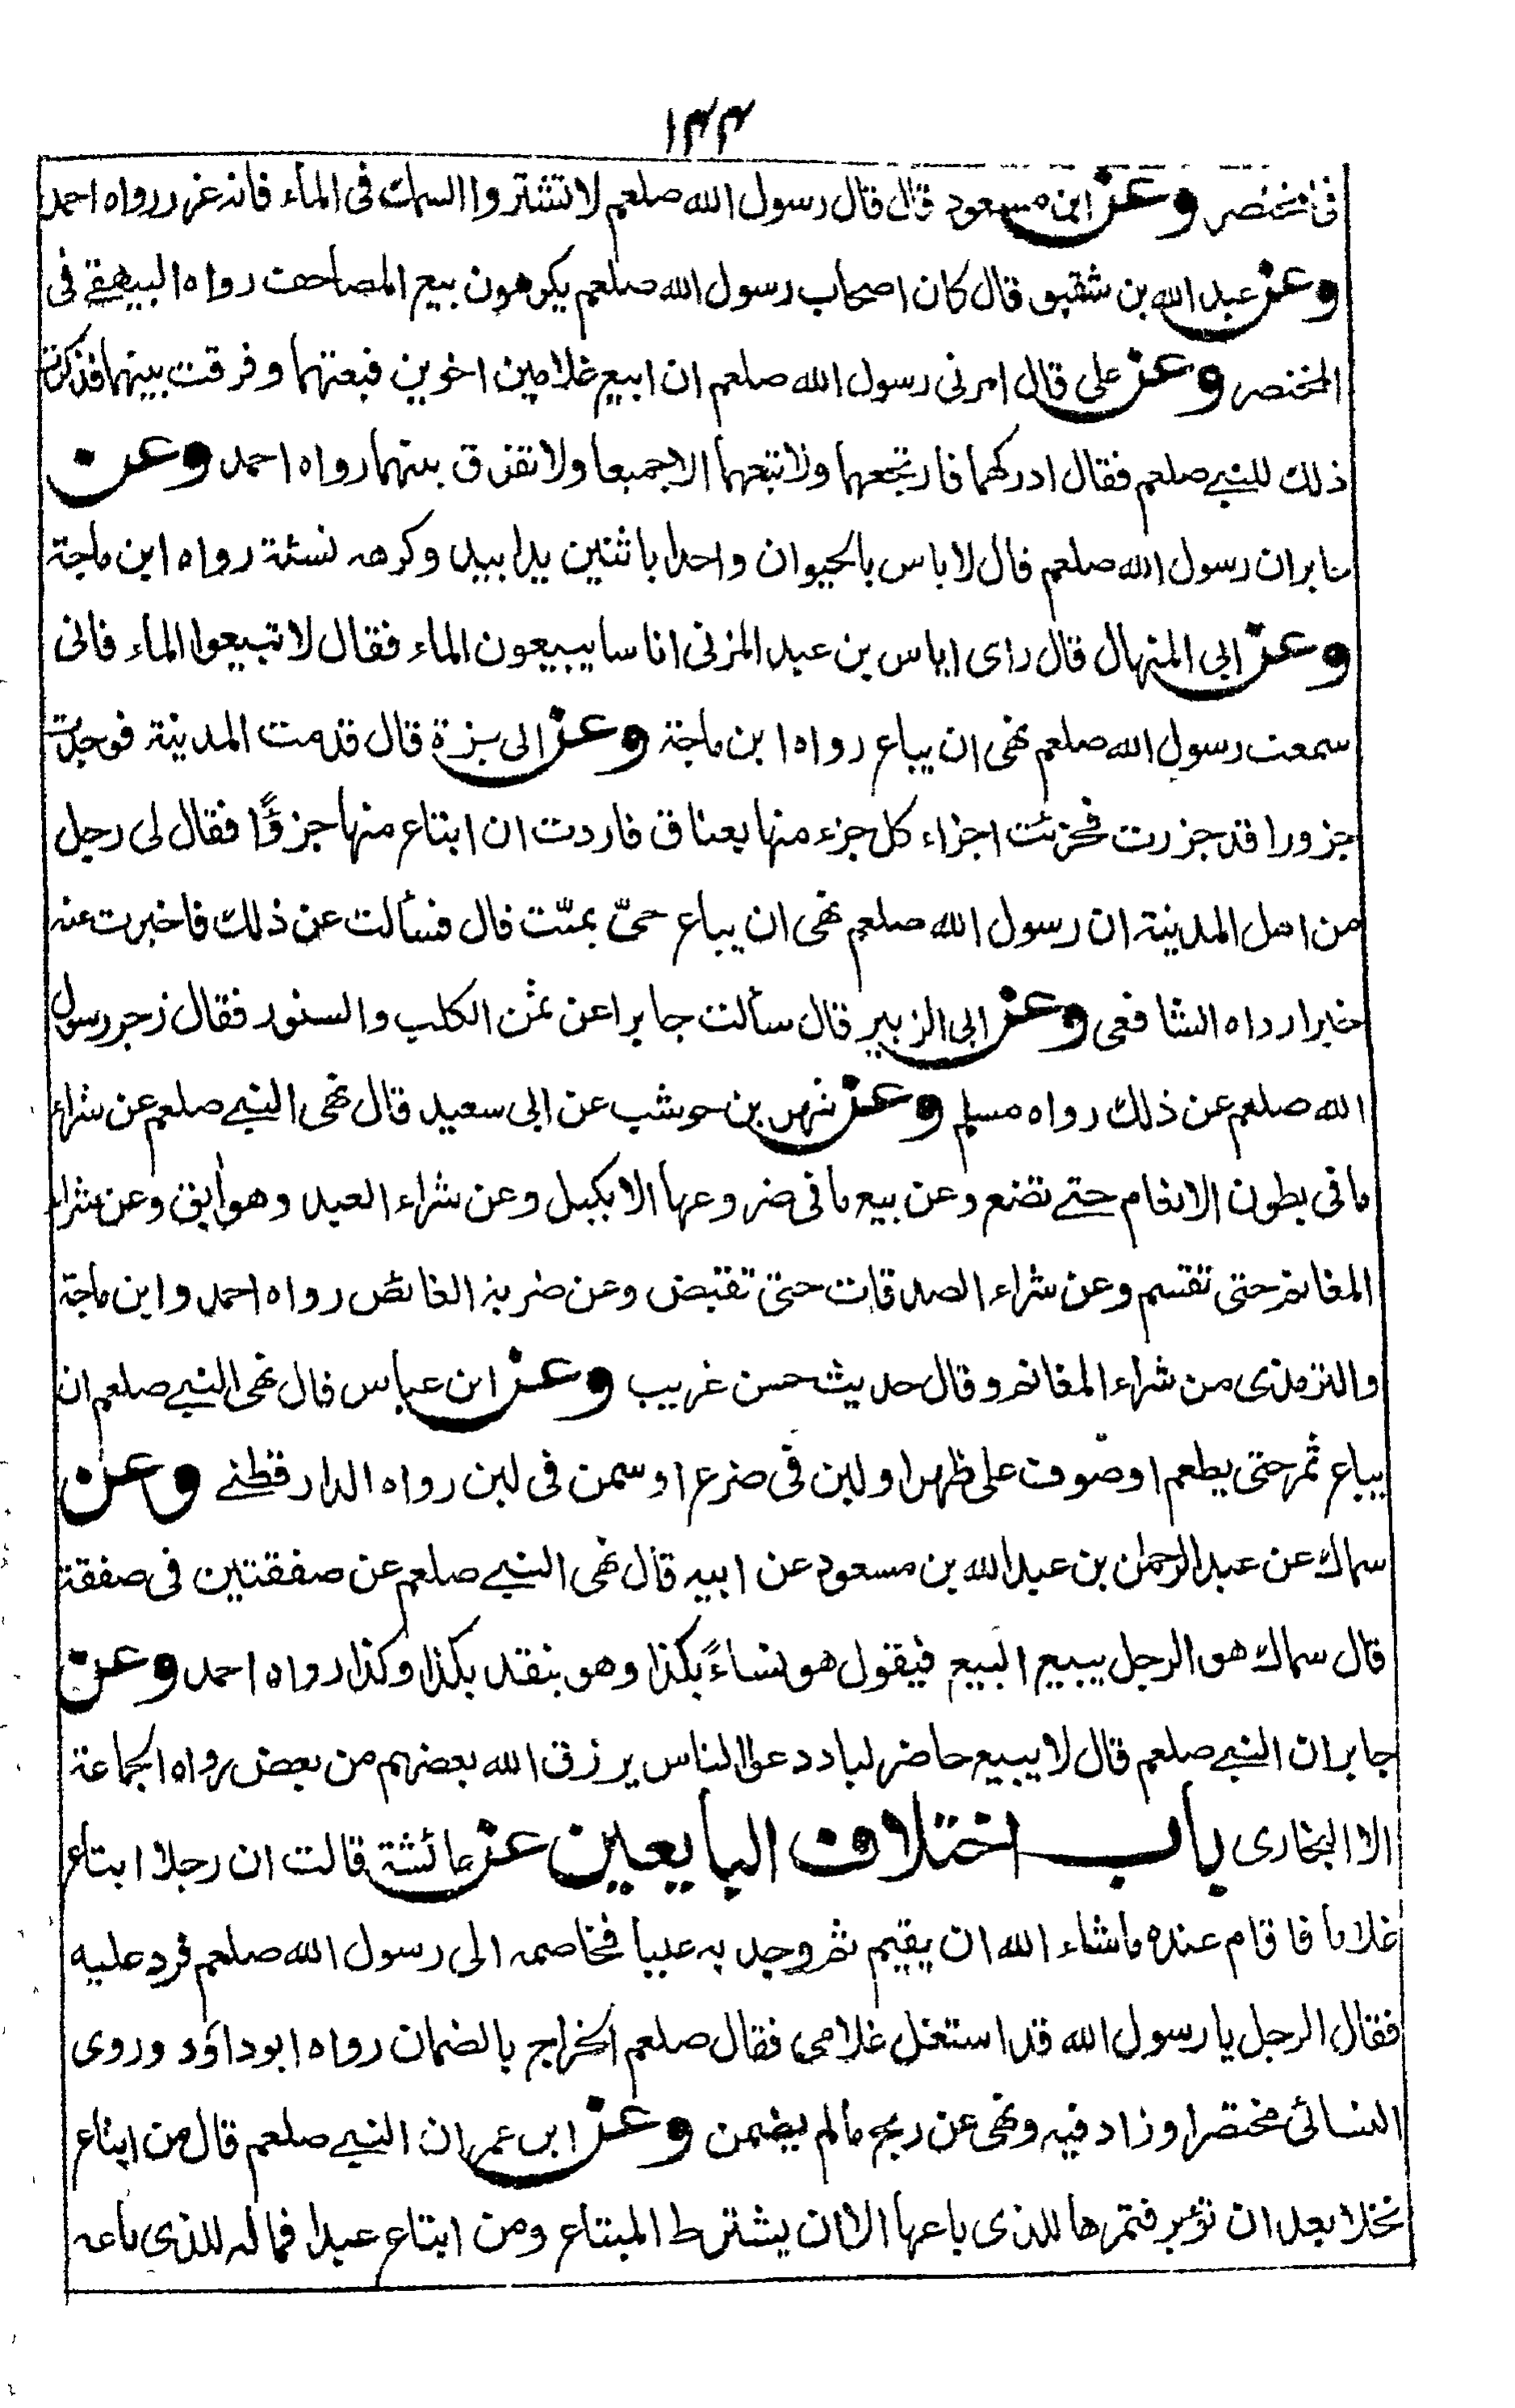 ١٤٤
فى المختصر وعن ابن مسعود قال قال رسول الله صلعم لا تشتروا السمك فى الماء فانه غرر رواه احمد
وعن عبد الله بن شقيق قال كان اصحاب رسول الله صلعم يكرهون بيع المصاحف رواه البيهقے فى
المختصر وعن على قال امرنى رسول الله صلعم ان ابيع غلامين اخوين فبعتهما وفرقت بينهما فذكرت
ذلك للنبے صلعم فقال ادركهما فارتجعهما ولا تبعهما الا جميعا ولا تفرق بينهما رواه احمد وعن
جابر ان رسول الله صلعم قال لا باس بالحيوان واحدا باثنين يدا بيد وكرهه نسئة رواه ابن ماجة
وعن ابى المنهال قال راى اياس بن عبد المزنى اناسا يبيعون الماء فقال لا تبيعوا الماء فانى
سمعت رسول الله صلعم نهى ان يباع رواه ابن ماجة وعن ابى بزة قال قدمت المدينة فوجدت
جزورا قد جزرت فجزئت اجزاء كل جزء منها بعناق فاردت ان ابتاع منها جزؤًا فقال لى رجل
من اهل المدينة ان رسول الله صلعم نهى ان يباع حىّ بميّت قال فسألت عن ذلك فاخبرت عنه
خيرا رواه الشافعى وعن ابى الزبير قال سألت جابرا عن ثمن الكلب والسنور فقال زجر رسول
الله صلعم عن ذلك رواه مسلم وعن شهر بن حوشب عن ابى سعيد قال نهى النبے صلعم عن شراء
ما فى بطون الانعام حتے تضع وعن بيع ما فى ضروعها الا بكيل وعن شراء العبد وهو أبق وعن شراء
المغانم حتى تقسم وعن شراء الصدقات حتى تقبض وعن ضربة الغائص رواه احمد وابن ماجة
والترمذى من شراء المغانم وقال حديث حسن غريب وعن ابن عباس قال نهى النبے صلعم ان
يباع ثمر حتى يطعم او صوف على ظهر او لبن فى ضرع او سمن فى لبن رواه الدارقطنے وعن
سماك عن عبد الرحمٰن بن عبد الله بن مسعود عن ابيه قال نهى النبے صلعم عن صفقتين فى صفقة
قال سماك هو الرجل يبيع البيع فيقول هو نساءً بكذا وهو بنقد بكذا وكذا رواه احمد وعن
جابر ان النبے صلعم قال لا يبيع حاضر لباد دعوا الناس يرزق الله بعضهم من بعض رواه الجماعة
الا البخارى باب اختلاف البايعين عن عائشة قالت ان رجلا ابتاع
غلاما فاقام عنده ما شاء الله ان يقيم ثم وجد به عيبا فخاصمه الى رسول الله صلعم فرد عليه
فقال الرجل يا رسول الله قد استغل غلامى فقال صلعم الخراج بالضمان رواه ابو داؤد وروى
النسائى مختصرا وزاد فيه ونهى عن ربح ما لم يضمن وعن ابن عمر ان النبے صلعم قال من ابتاع
نخلا بعد ان تؤبر فثمرها للذى باعها الا ان يشترط المبتاع ومن ابتاع عبدا فماله للذى باعه